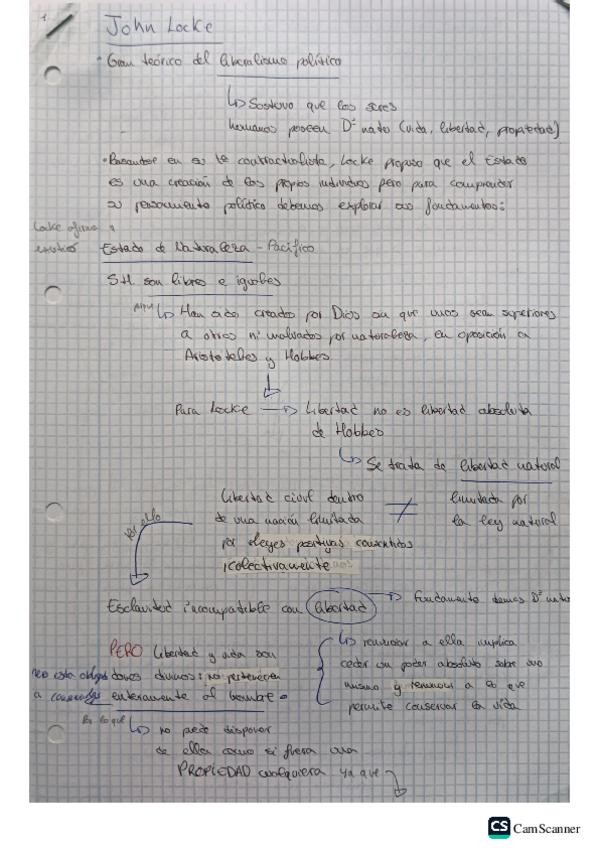 1
John Locke
· Gran teórico del liberalismo político
↳ Sostuvo que los seres
humanos poseen Dº nato (vida, libertad, propiedad)
· Basandose en su te contractualista, Locke propuso que el Estado
es una creación de los propios individuos pero para comprender
su pensamiento político debemos explorar sus fundamentos:
Locke afirma
Estado de Naturaleza - Pacífico
S.H. son libres e iguales
↳ Han sido creados por Dios sin que unos sean superiores
a otros ni malvados por naturaleza, en oposición a
Aristóteles y Hobbes
Para Locke → Libertad no es libertad absoluta
de Hobbes
↳ Se trata de libertad natural
Libertad civil dentro ≠ limitada por
de una nación limitada la ley natural
por leyes positivas consentidas
colectivamente
Por ello
Esclavitud incompatible con libertad → Fundamento demas Dº
PERO libertad y vida son
dones divinos: no pertenecen
enteramente al hombre
↳ renunciar a ella implica
ceder un poder absoluto sobre uno
mismo y renunciar a lo que
permite conservar la vida
Por lo que
↳ no puede disponer
de ellas como si fuera una
PROPIEDAD cualquiera ya que
CS CamScanner